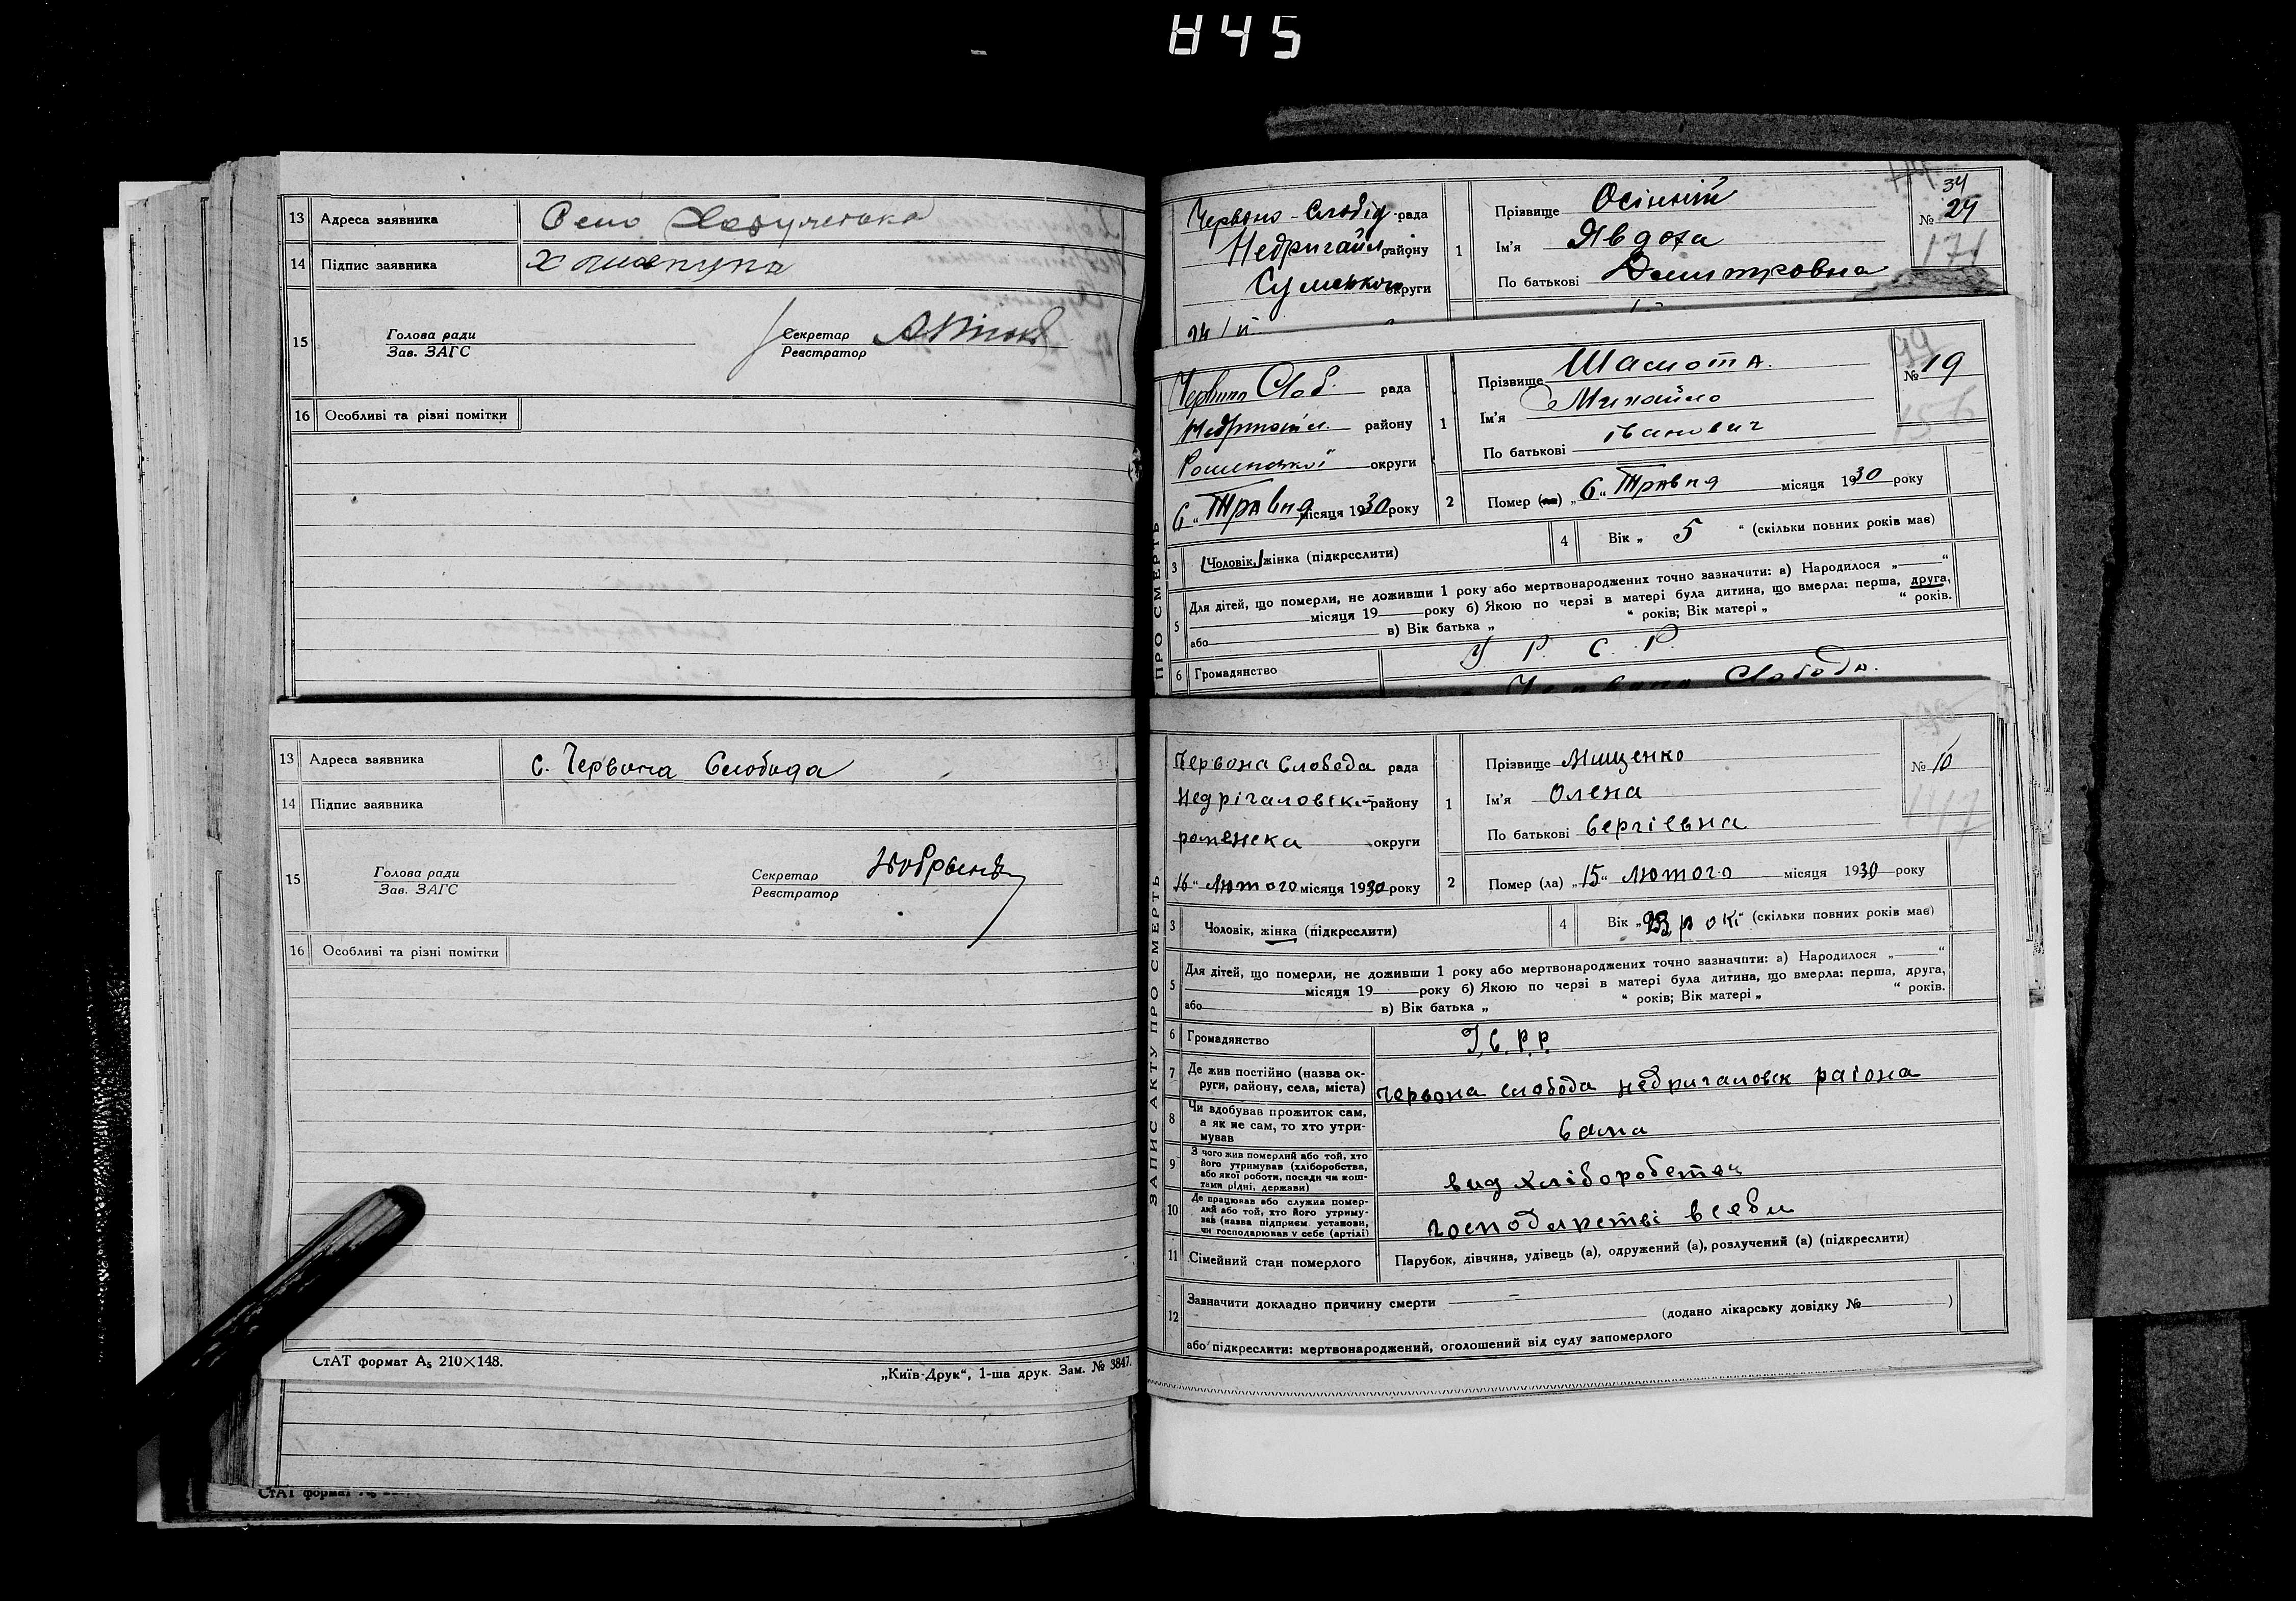 845
13 Адреса заявника Село
14 Підпис заявника
15 Голова ради
Зав. ЗАГС
Секретар
Реєстратор
16 Особливі та різні помітки
13 Адреса заявника с. Червона Слобода
14 Підпис заявника
15 Голова ради
Зав. ЗАГС
Секретар
Реєстратор
16 Особливі та різні помітки
СтАТ формат А₅ 210×148.
„Київ-Друк“, 1-ша друк. Зам. № 3847.
СтАТ формат
Червоно-Слобід рада
Недригайл району
Сумської округи
1 Прізвище Осінній
Ім'я Явдоха
По батькові Дмитровна
34
№ 24
171
Червоно Слоб. рада
Недригайл. району
Роменської округи
6 „ Травня місяця 1930 року
1 Прізвище Шамота.
Ім'я Михайло
По батькові іванович
99
№ 19
156
2 Помер (ла) „6“ Травня місяця 1930 року
3 Чоловік, жінка (підкреслити)
4 Вік „ 5 “ (скільки повних років має)
5 Для дітей, що померли, не доживши 1 року або мертвонароджених точно зазначити: а) Народилося „ “
місяця 19 року б) Якою по черзі в матері була дитина, що вмерла: перша, друга,
або в) Вік батька „ “ років; Вік матері „ “ років.
6 Громадянство У. Р. С. Р.
Червона Слобода.
ПРО СМЕРТЬ
Червона Слобода рада
Недрігаловск району
роменска округи
16 “ Лютого місяця 1930 року
1 Прізвище Мищенко
Ім'я Олена
По батькові Сергіевна
№ 10
147
2 Помер (ла) „15“ лютого місяця 1930 року
3 Чоловік, жінка (підкреслити)
4 Вік „ рокі “ (скільки повних років має)
5 Для дітей, що померли, не доживши 1 року або мертвонароджених точно зазначити: а) Народилося „ “
місяця 19 року б) Якою по черзі в матері була дитина, що вмерла: перша, друга,
або в) Вік батька „ “ років; Вік матері „ “ років.
6 Громадянство У.С.Р.Р.
7 Де жив постійно (назва ок-
руги, району, села, міста) Червона слобода недригаловск раіона
8 Чи здобував прожиток сам,
а як не сам, то хто утри-
мував Сама
9 З чого жив померлий або той, хто
його утримував (хліборобства,
або якої роботи, посади чи кош-
тами рідні, держави) вид хліборобства
10 Де працював або служив помер-
лий або той, хто його утриму-
вав (назва підприєм установи,
чи господарював у себе (артілі) господарстві всеби
11 Сімейний стан померлого Парубок, дівчина, удівець (а), одружений (а), розлучений (а) (підкреслити)
12 Зазначити докладно причину смерти
(додано лікарську довідку № )
або підкреслити: мертвонароджений, оголошений від суду запомерлого
ЗАПИС АКТУ ПРО СМЕРТЬ